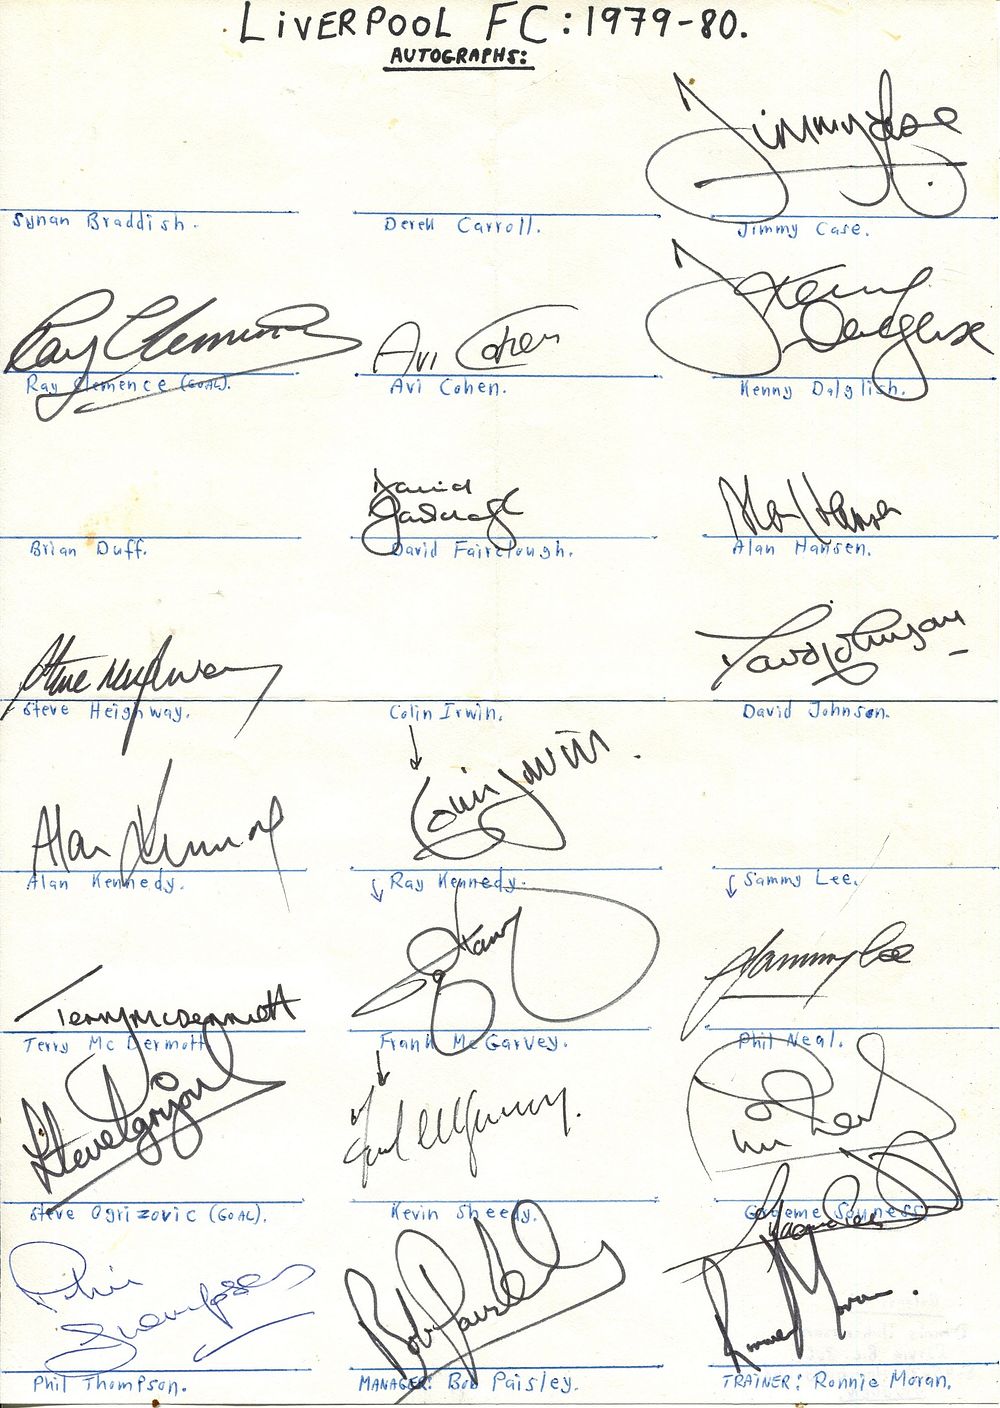 LiVERPOOL FC: 1979-80.
AUTOGRAPHS:
Jimmy Case
Synan Braddish. Derek Carroll. Jimmy Case.
Ray Clemence Avi Cohen Kenny Dalglish
Ray Clemence (GOAL). Avi Cohen. Kenny Dalglish.
David Fairclough Alan Hansen
Brian Duff. David Fairclough. Alan Hansen.
Steve Heighway David Johnson
Steve Heighway. Colin Irwin. David Johnson.
Alan Kennedy Colin Irwin
Alan Kennedy. Ray Kennedy. Sammy Lee.
Terry McDermott Ray Kennedy Sammy Lee
Terry Mc Dermott Frank Mc Garvey. Phil Neal.
Steve Ogrizovic Frank McGarvey. Phil Neal
Steve Ogrizovic (GOAL). Kevin Sheedy. Graeme Souness
Graeme Souness
Phil Thompson Bob Paisley Ronnie Moran.
Phil Thompson. MANAGER: Bob Paisley. TRAINER: Ronnie Moran.